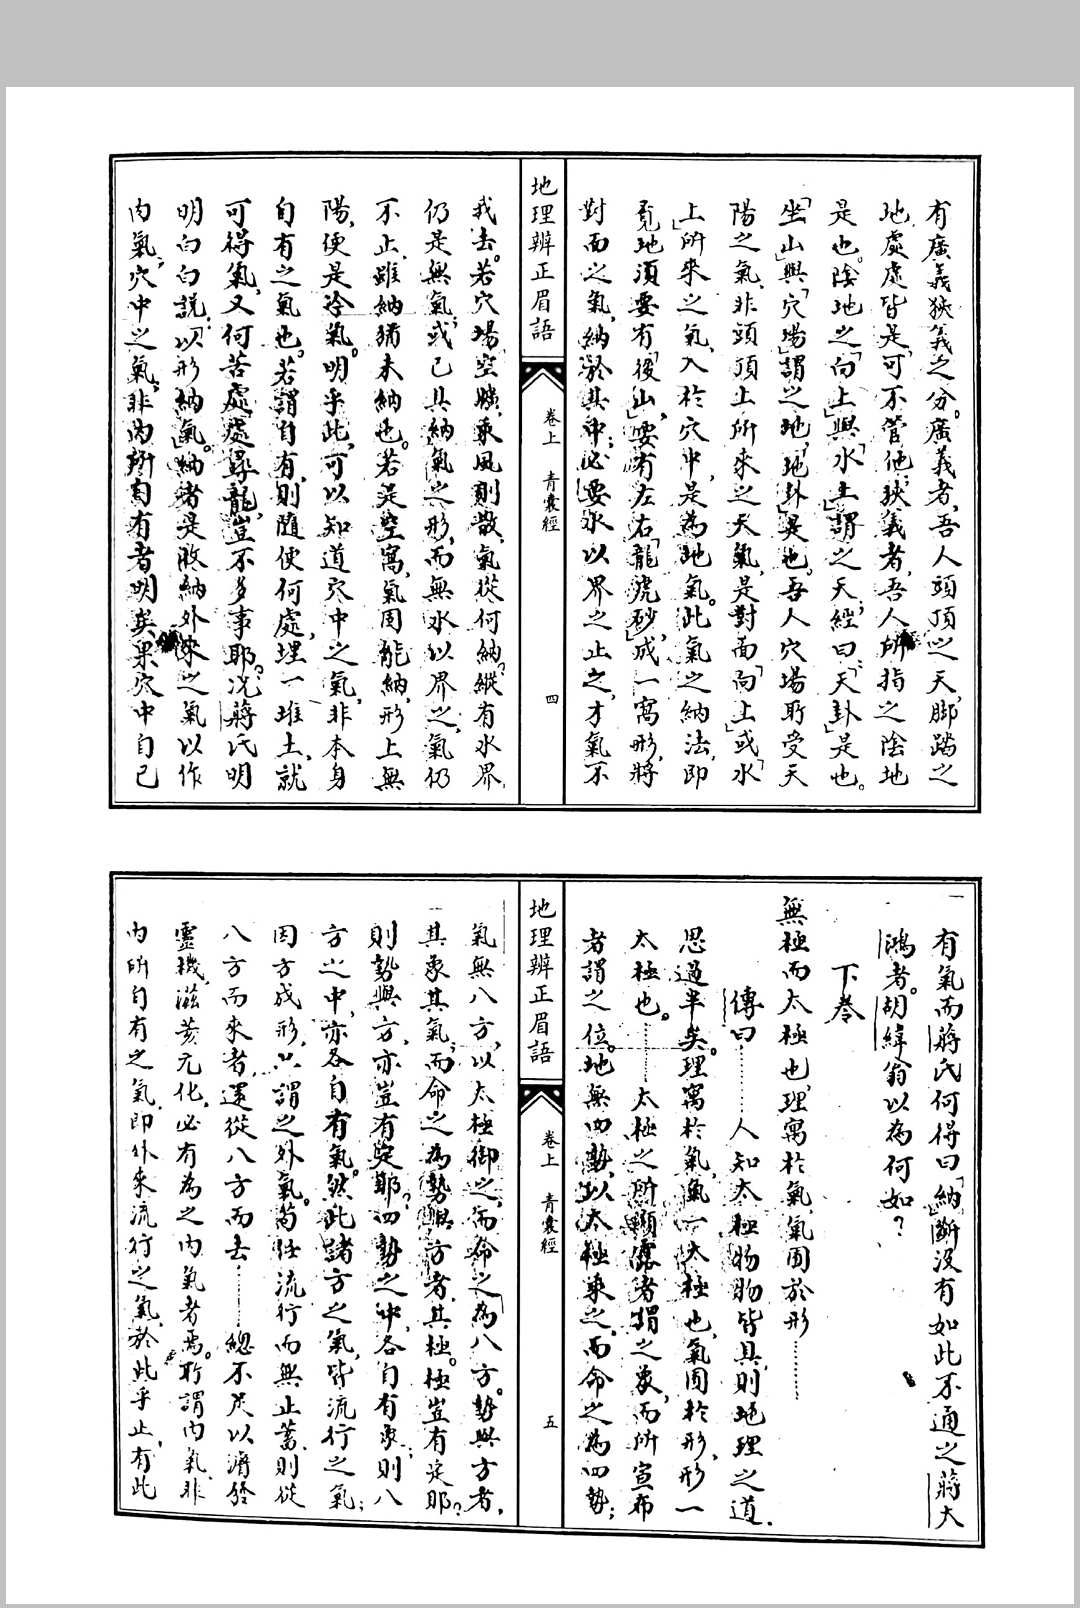 有廣義狹義之分。廣義者，吾人頭頂之天，脚踏之
地，處處皆是，可不管他；狹義者，吾人所指之陰地
是也。陰地之「向上」與「水上」謂之天，經曰：「天卦」是也。
「坐山」與「穴場」謂之地，「地卦」是也。吾人穴場所受天
陽之氣，非頭頂上所來之天氣，是對面「向上」或「水
上」所來之氣，入於穴中，是為地氣。此氣之納法，即
覓地須要有「後山」，要有左右「龍虎砂」，成一窩形，將
對面之氣，納於其中；必要水以界之止之，才氣不
地理辨正眉語
卷上　青囊經
四
我去。若穴場空曠，乘風則散，氣從何納，縱有水界，
仍是無氣；或已具納氣之形，而無水以界之，氣仍
不止，雖納猶未納也。若是空窩，氣固能納，形上無
陽，便是冷氣。明乎此，可以知道穴中之氣，非本身
自有之氣也。若謂自有，則隨便何處，埋一堆土，就
可得氣，又何苦處處尋龍，豈不多事耶。況蔣氏明
明白白說，「以形納氣」。納者是收納外來之氣以作
內氣，穴中之氣，非內所自有者明矣。果穴中自己
有氣，而蔣氏何得曰「納」，斷沒有如此不通之蔣大
鴻者。胡緯翁以為何如？
下卷
無極而太極也，理寓於氣，氣囿於形………
傳曰………人知太極物物皆具，則地理之道，
思過半矣。理寓於氣，氣一太極也，氣囿於形，形一
太極也。………太極之所顯露者謂之象，而所宣布
者謂之位。地無四勢，以太極乘之，而命之為四勢；
地理辨正眉語
卷上　青囊經
五
氣無八方，以太極御之，而命之為八方。勢與方者，
其象其氣；而命之為勢與方者，其極。極豈有定耶？
則勢與方，亦豈有定耶？四勢之中，各自有象；則八
方之中，亦各自有氣。然此諸方之氣，皆流行之氣；
因方成形，只謂之外氣。苟任流行而無止蓄，則從
八方而來者，還從八方而去………總不足以濟發
靈機，滋養元化，必有為之內氣者焉。所謂內氣，非
內所自有之氣，即外來流行之氣，於此乎止，有此